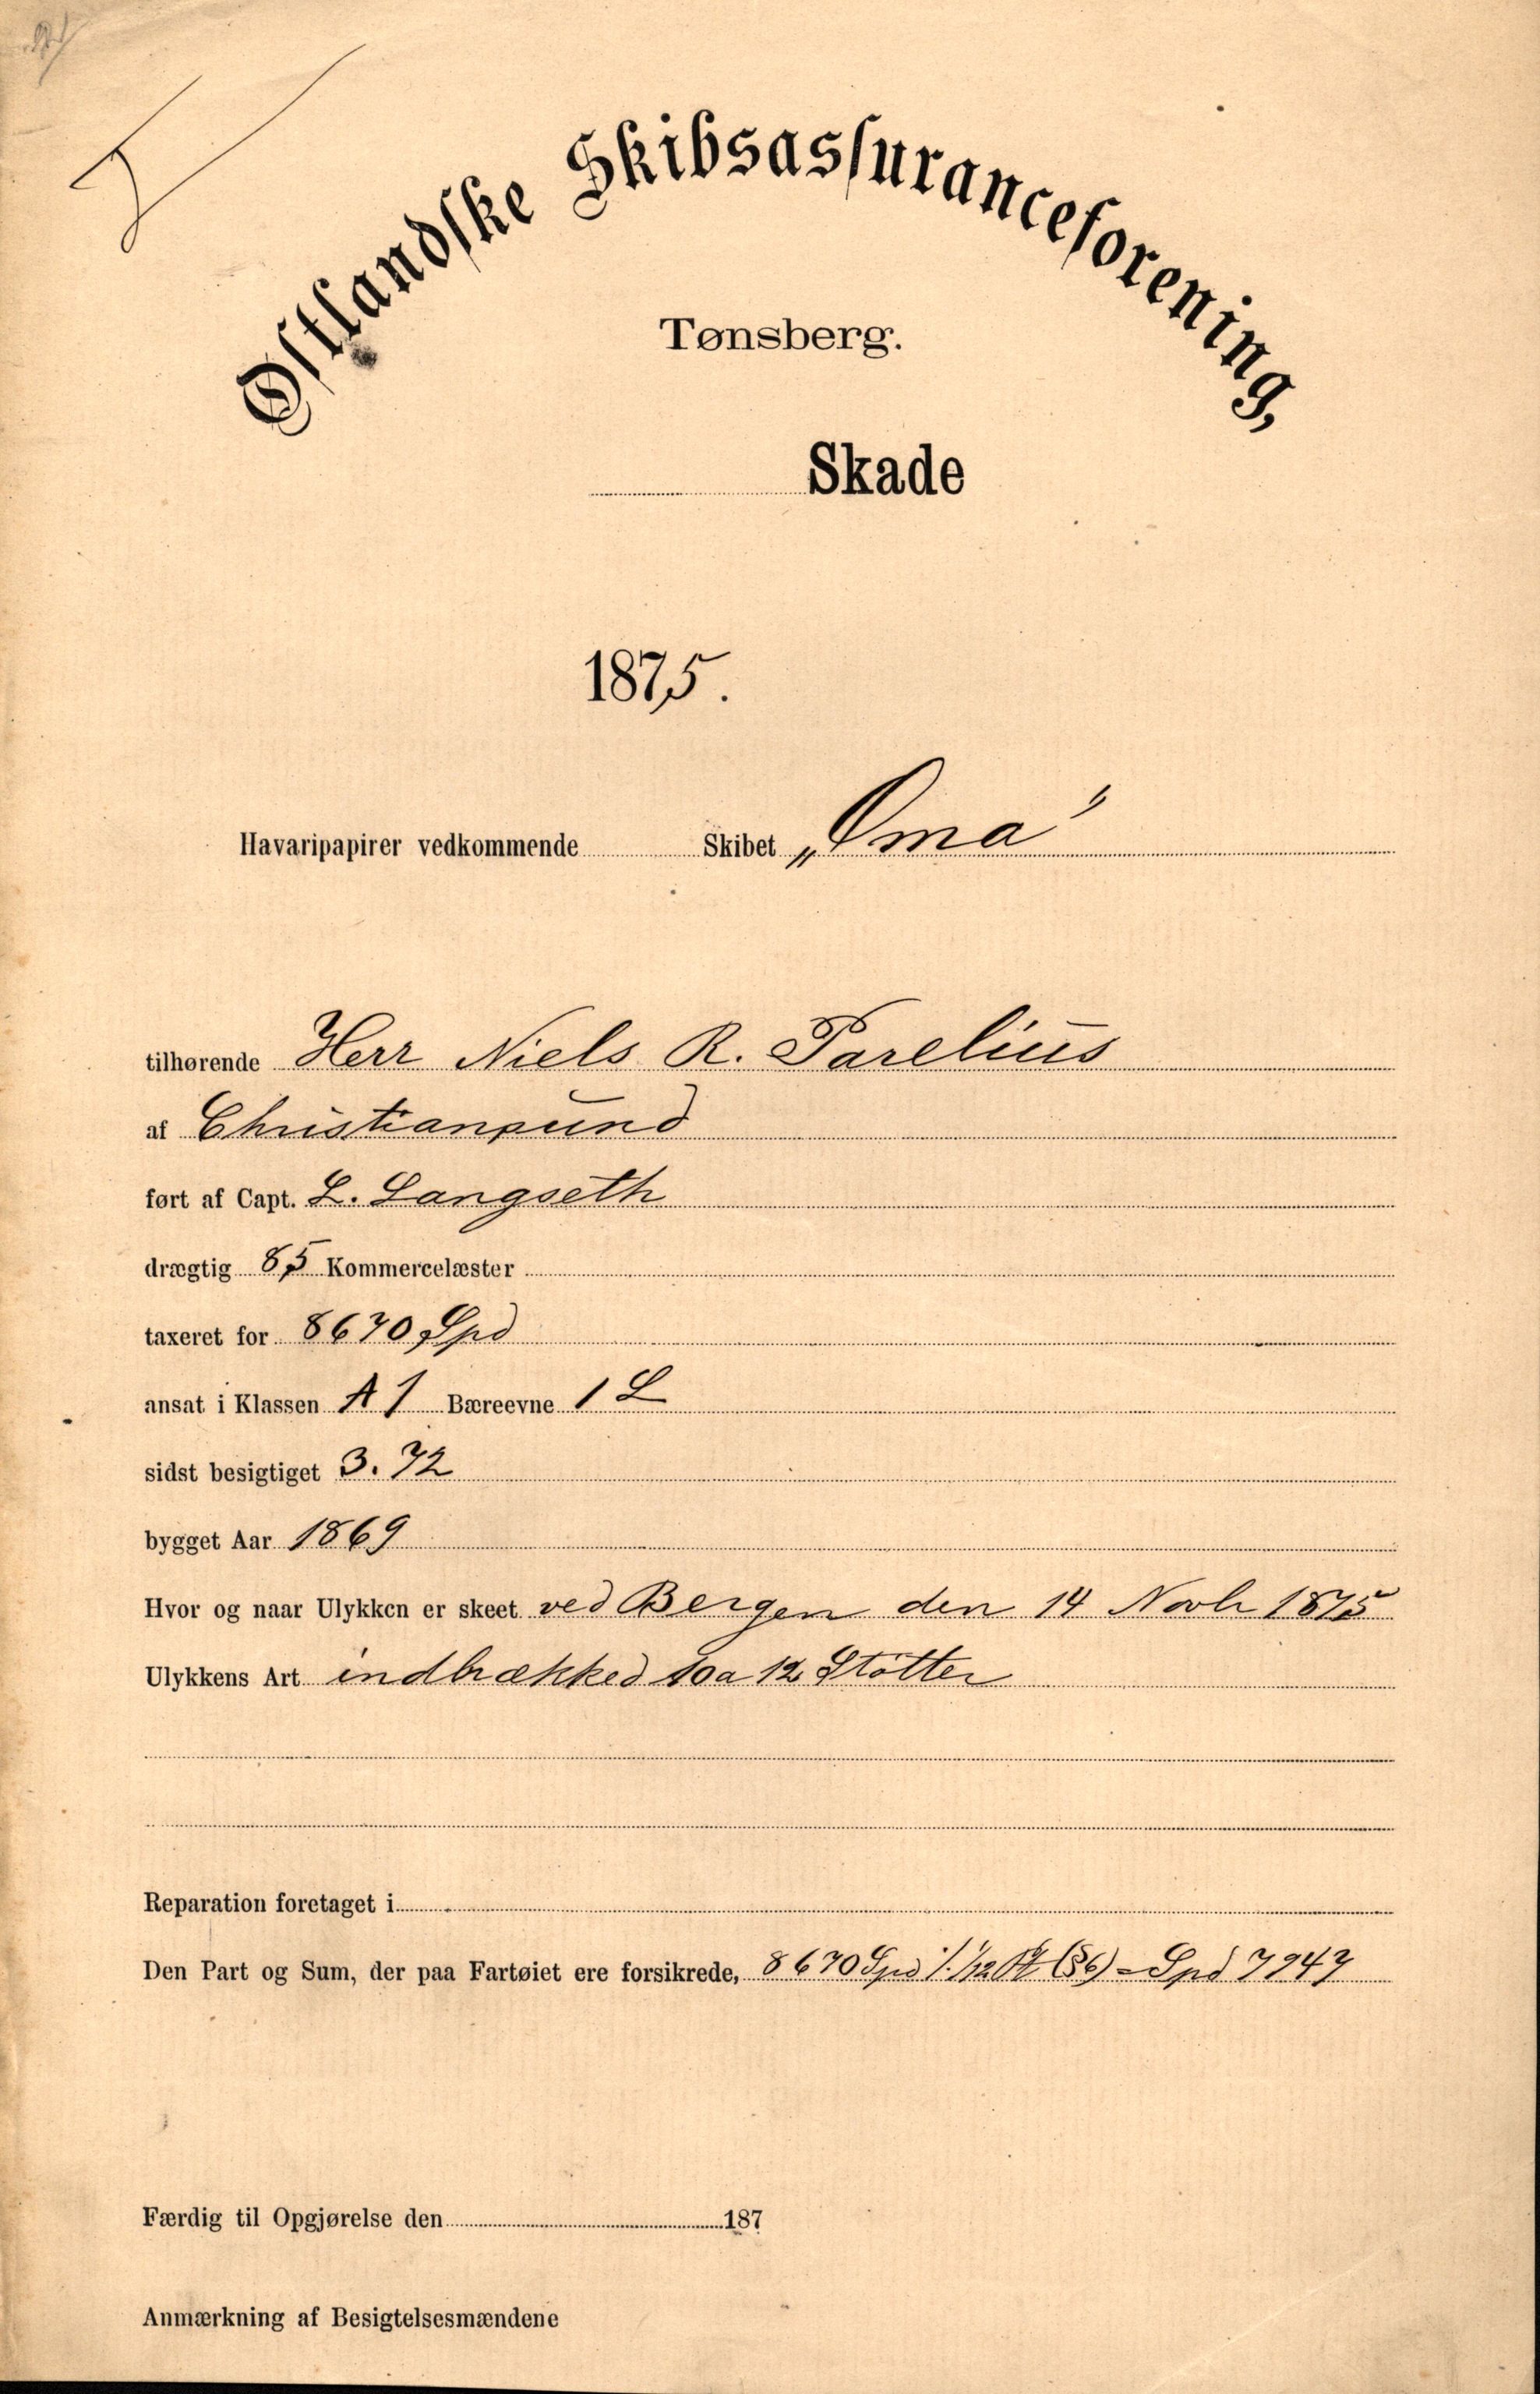 Østlandske Skibsassuranceforening,
Tønsberg.
Skade
1875.
Havaripapirer vedkommende Skibet „Oma"
tilhørende Herr Niels R. Parelius
af Christiansund
ført af Capt. L. Langseth
drægtig 85 Kommercelæster
taxeret for 8670 Spd
ansat i Klassen A 1 Bæreevne 1 L
sidst besigtiget 3. 72
bygget Aar 1869
Hvor og naar Ulykken er skeet ved Bergen den 14 Novb 1875
Ulykkens Art indbrækked 10 a 12 Støtter
Reparation foretaget i
Den Part og Sum, der paa Fartøiet ere forsikrede, 8670 Spd ./. 1/12 (§6) = Spd 7947
Færdig til Opgjørelse den 187
Anmærkning af Besigtelsesmændene